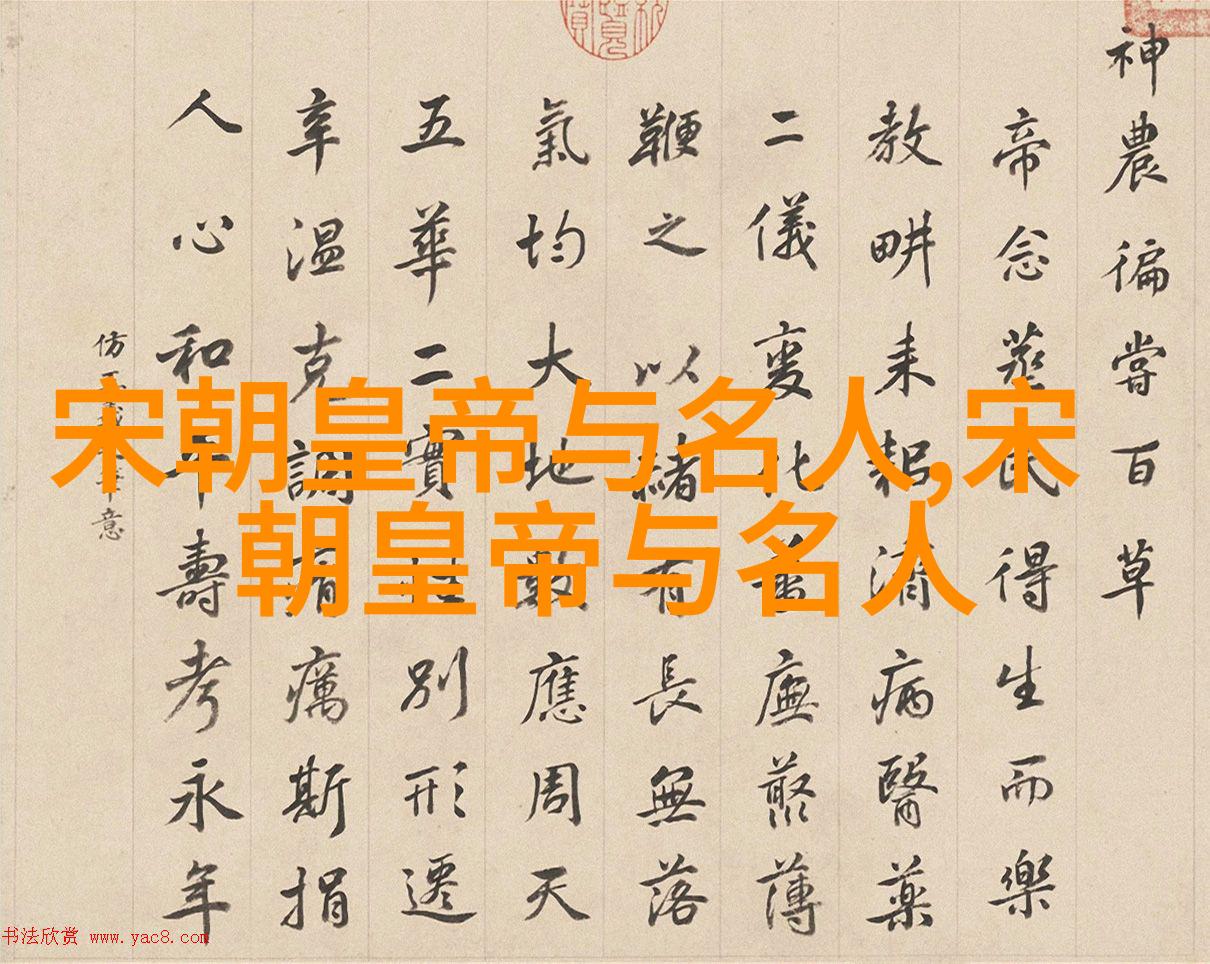 神農徧嘗百草
帝念蒸民得生而樂
教畊耒耜病醫藥
二儀變化薄
鞭之以緒有長無落
氣均大地數應周天
五華二實別形遷
辛溫克調癘斯捐
人心和平壽考永年
仿意
宋朝皇帝与名人,宋
朝皇帝与名人
书法欣赏 www.yac8.com